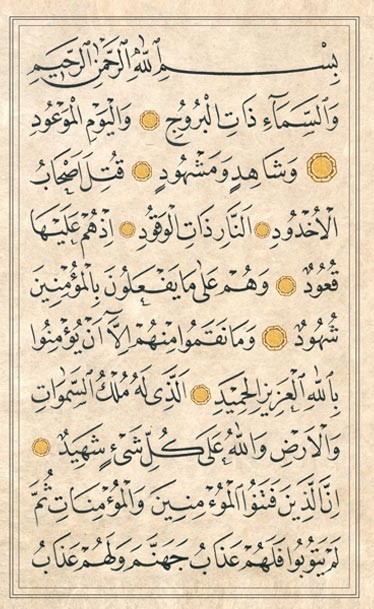 بِسْمِ اللّٰهِ الرَّحْمٰنِ الرَّحٖيمِ
وَالسَّمَٓاءِ ذَاتِ الْبُرُوجِ وَالْيَوْمِ الْمَوْعُودِ
وَشَاهِدٍ وَمَشْهُودٍ قُتِلَ اَصْحَابُ
الْاُخْدُودِ اَلنَّارِ ذَاتِ الْوَقُودِ اِذْ هُمْ عَلَيْهَا
قُعُودٌ وَهُمْ عَلٰى مَا يَفْعَلُونَ بِالْمُؤْمِنٖينَ
شُهُودٌ وَمَا نَقَمُوا مِنْهُمْ اِلَّٓا اَنْ يُؤْمِنُوا
بِاللّٰهِ الْعَزٖيزِ الْحَمٖيدِ اَلَّذٖى لَهُ مُلْكُ السَّمٰوَاتِ
وَالْاَرْضِ وَاللّٰهُ عَلٰى كُلِّ شَىْءٍ شَهٖيدٌ
اِنَّ الَّذٖينَ فَتَنُوا الْمُؤْمِنٖينَ وَالْمُؤْمِنَاتِ ثُمَّ
لَمْ يَتُوبُوا فَلَهُمْ عَذَابُ جَهَنَّمَ وَلَهُمْ عَذَابُ